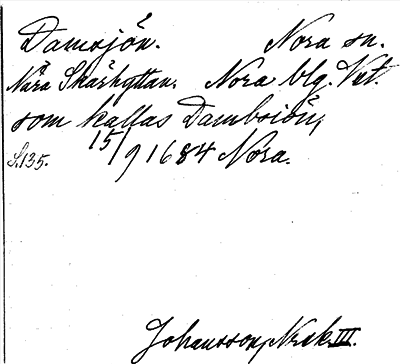 Damsjön. Nora sn.
Nära Skärhyttan. Nora blg. Vst.
som kallas Dambsiön,
S.135. 15/9 1684 Nora.
Johansson, Norak. III.